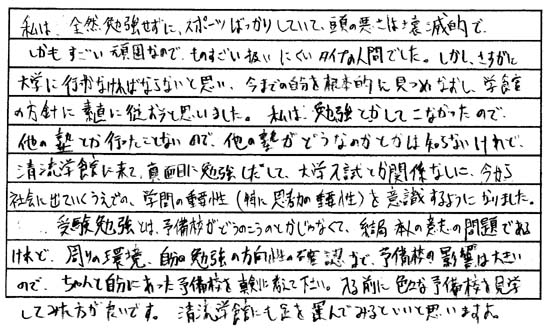 私は、全然勉強せずに、スポーツばっかりしていて、頭の悪さは壊滅的で、
しかもすごい頑固なので、ものすごい扱いにくいタイプの人間でした。しかし、さすがに
大学に行かなければならないと思い、今までの自分を根本的に見つめなおし、学館
の方針に素直に従おうと思いました。私は、勉強とかしてこなかったので、
他の塾とか行ったことないので、他の塾がどうなのかとかは知らないけれど、
清流学館に来て、真面目に勉強しだして、大学入試とか関係なしに、今から
社会に出ていくうえでの、学問の重要性(特に思考力の重要性)を意識するようになりました。
受験勉強とは、予備校がどうのこうのとかじゃなくて、結局本人の意志の問題である
けれど、周りの環境、自分の勉強の方向性の確認まで、予備校の影響は大きい
ので、ちゃんと自分にあった予備校を真剣に考えて下さい。入る前に色々な予備校を見学
してみた方が良いです。清流学館にも足を運んでみるといいと思いますよ。